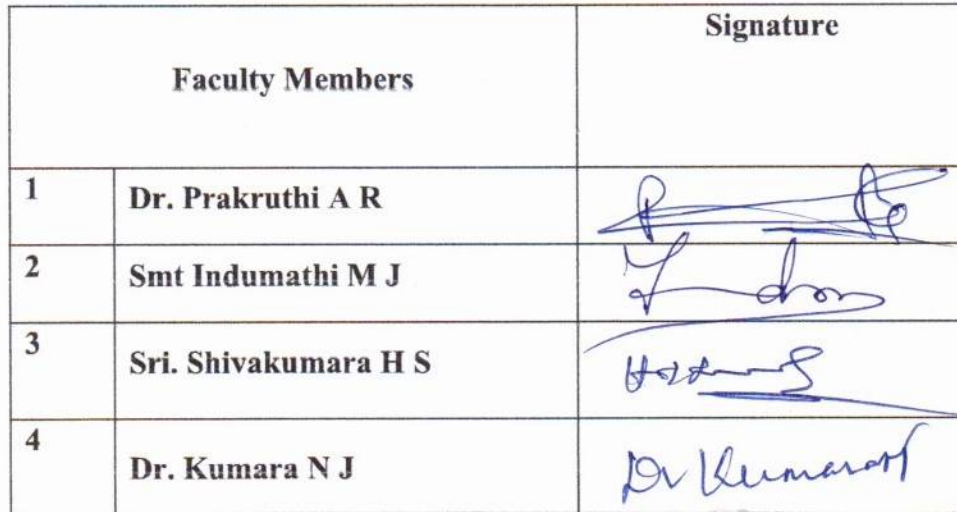 Faculty Members Signature
1 Dr. Prakruthi A R
2 Smt Indumathi M J
3 Sri. Shivakumara H S
4 Dr. Kumara N J